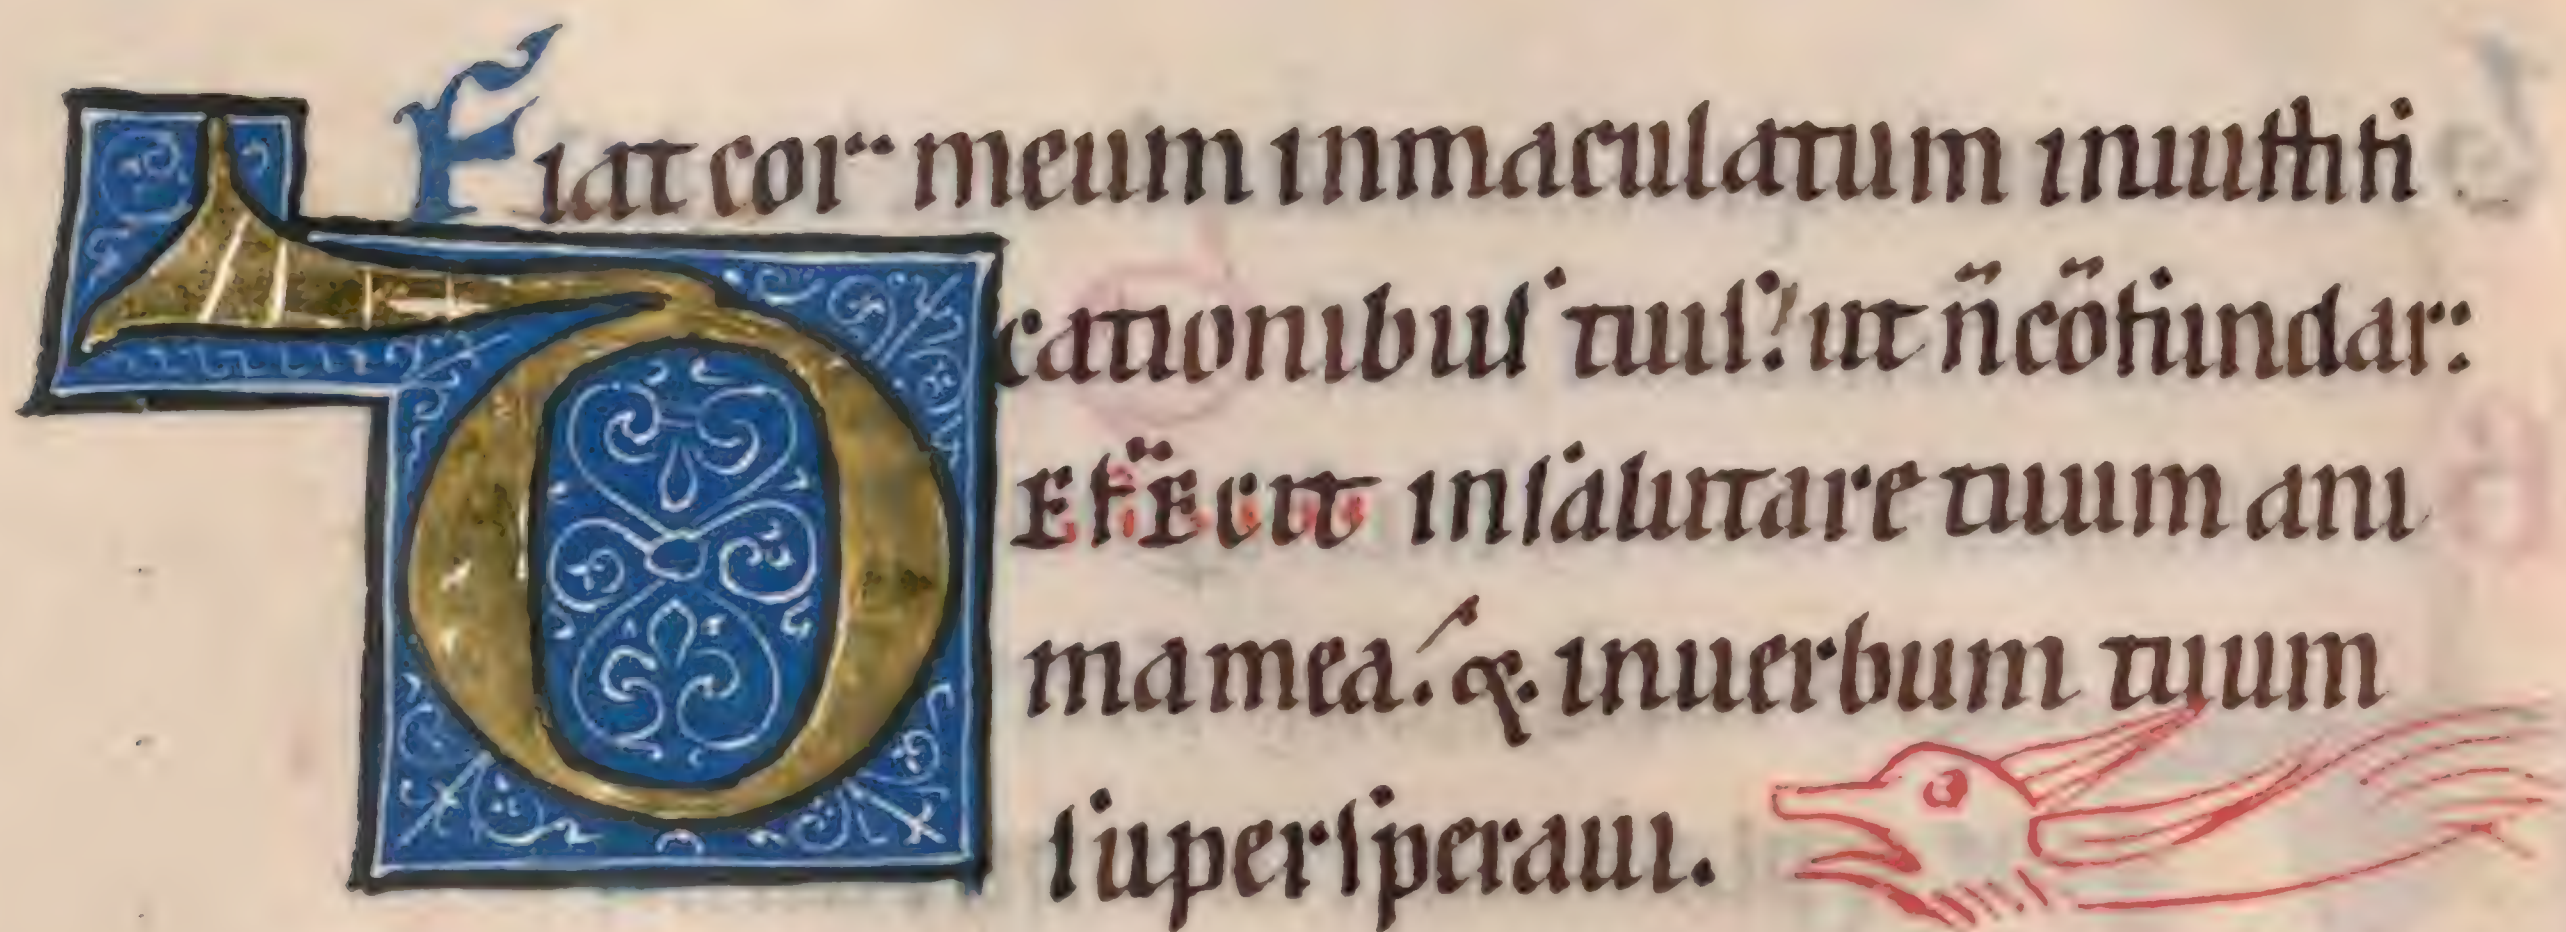 Fiat cor meum inmaculatum iniustifi
cationibus tuis? ut n̄ cōfundar:
DEFECIT insalutare tuum ani
ma mea: & inuerbum tuum
supersperaui.